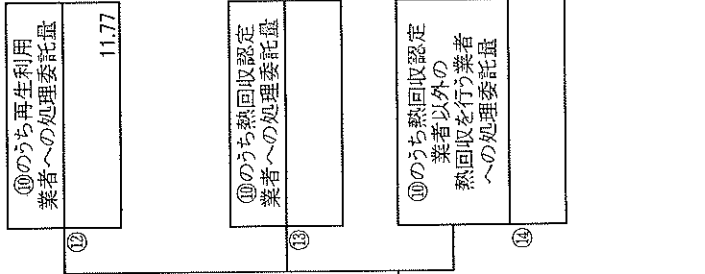 ⑩のうち再生利用
業者への処理委託量
⑫
11.77
⑩のうち熱回収認定
業者への処理委託量
⑬
⑩のうち熱回収認定
業者以外の
熱回収を行う業者
への処理委託量
⑭